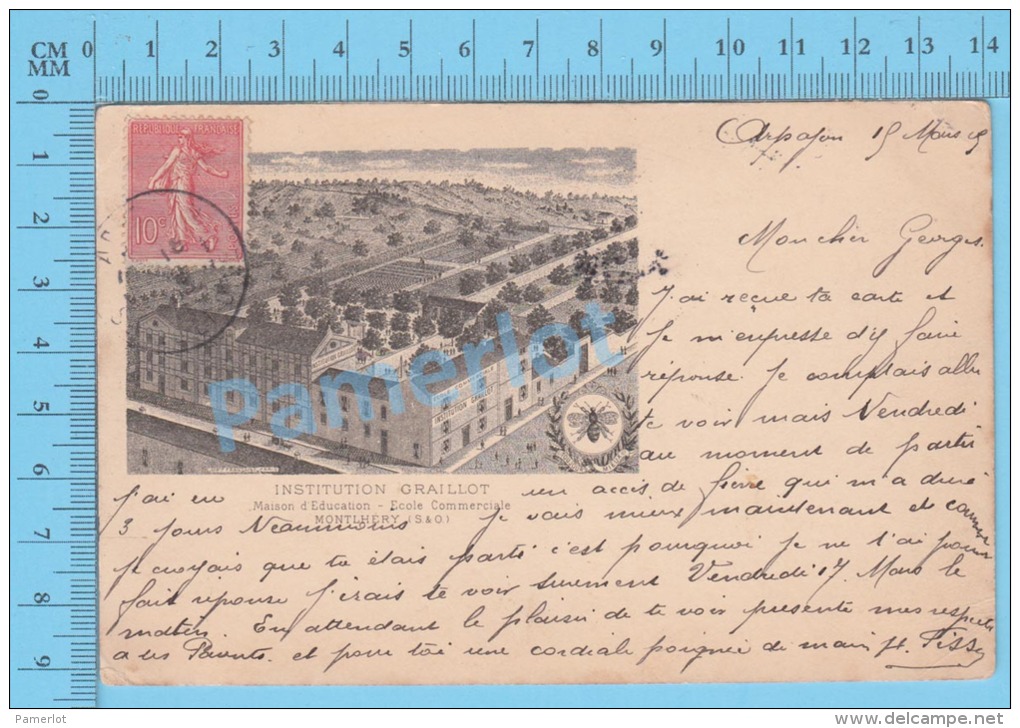 CM 0 1 2 3 4 5 6 7 8 9 10 11 12 13 14
MM
0
1
2
3
4
5
6
7
8
9
REPUBLIQUE FRANÇAISE
10c
Arpajon 15 Mars
Mon cher Georges
J'ai reçue ta carte et
je m'enpresse d'y faire
réponse. Je comptais aller
te voir mais Vendredi
au moment de partir
J'ai eu un accis de fièvre qui m'a duré
3 jours Néanmoins je vais mieux maintenant et comme
je croyais que tu étais parti c'est pourquoi je ne t'ai point
fait réponse J'irais te voir surement Vendredi 17 Mars le
matin. En attendant le plaisir de te voir presente mes respects
a tes Parents. et pour toi une cordiale poignée de main
INSTITUTION GRAILLOT
INSTITUTION GRAILLOT
Maison d'Education - Ecole Commerciale
MONTLHÉRY (S.&O.)
Pamerlot
Pamerlot
www.delcampe.net